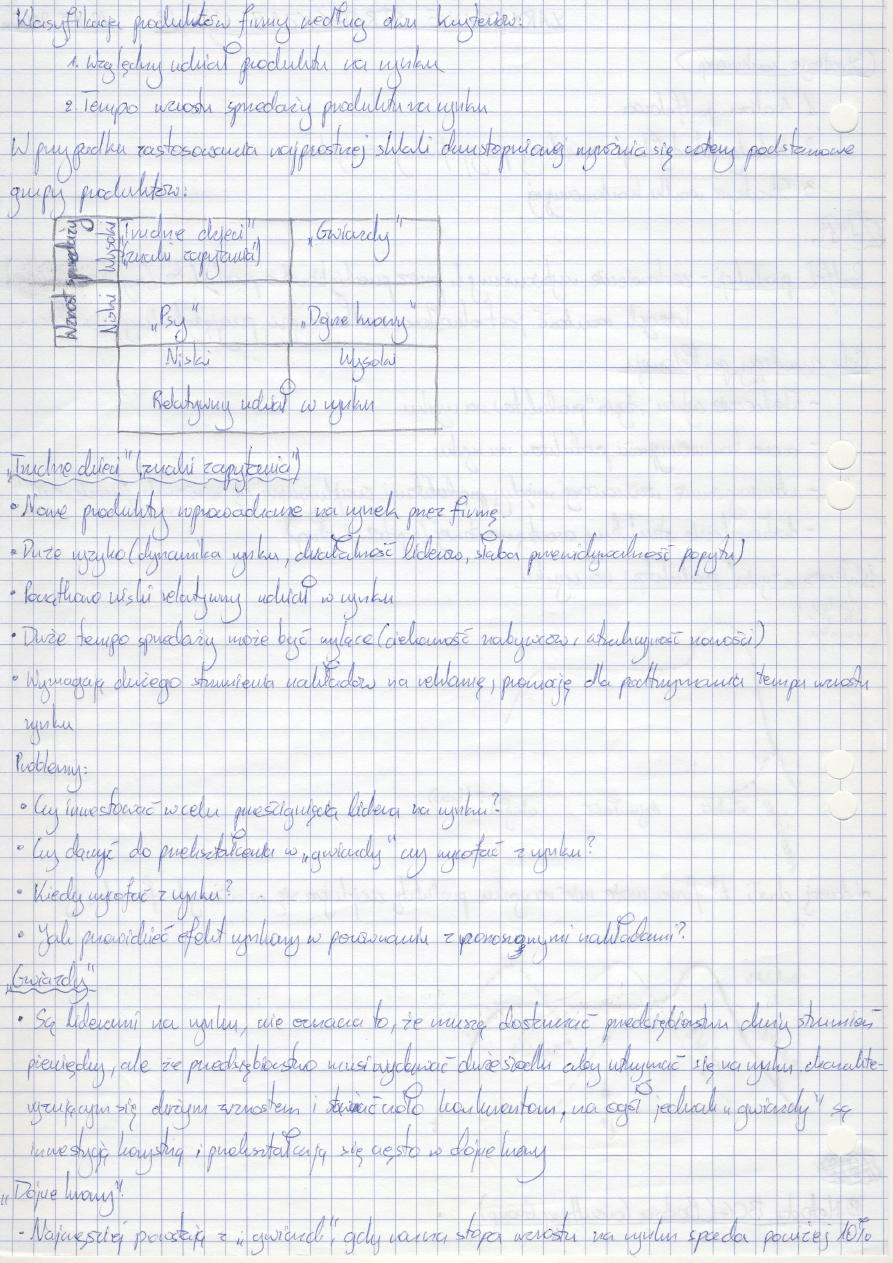 Klasyfikacja produktów firmy według dwu kryteriów:
1. Względny udział produktu na rynku
2. Tempo wzrostu sprzedaży produktu na rynku
W przypadku zastosowania najprostszej skali dwustopniowej wyróżnia się cztery podstawowe
grupy produktów:
Wzrost sprzedaży
Wysoki
„Trudne dzieci"
(znaki zapytania)
„Gwiazdy"
Niski
„Psy"
„Dojne krowy"
Niski
Wysoki
Relatywny udział w rynku
„Trudne dzieci" (znaki zapytania")
• Nowe produkty wprowadzane na rynek przez firmę
• Duże ryzyko (dynamika rynku, działalność liderów, słaba przewidywalność popytu)
• Początkowo niski relatywny udział w rynku
• Duże tempo sprzedaży może być mylące (ciekawość nabywców, atrakcyjność nowości)
• Wymagają dużego strumienia nakładów na reklamę, promocję dla podtrzymania tempa wzrostu
rynku
Problemy:
• Czy inwestować w celu prześcignięcia lidera na rynku?
• Czy dążyć do przekształcenia w „gwiazdy" czy wycofać z rynku?
• Kiedy wycofać z rynku?
• Jak przewidzieć efekt uzyskany w porównaniu z ponoszonymi nakładami?
„Gwiazdy"
• Są liderami na rynku, nie oznacza to, że muszą dostarczać przedsiębiorstwu duży strumień
pieniędzy, ale że przedsiębiorstwo musi wydawać duże środki aby utrzymać się na rynku charakte-
ryzującym się dużym wzrostem i stawiać czoło konkurentom, na ogół jednak „gwiazdy" są
inwestycją korzystną i przekształcają się często w dojne krowy
„Dojne krowy"
- Najczęściej powstają z „gwiazd", gdy roczna stopa wzrostu na rynku spada poniżej 10%